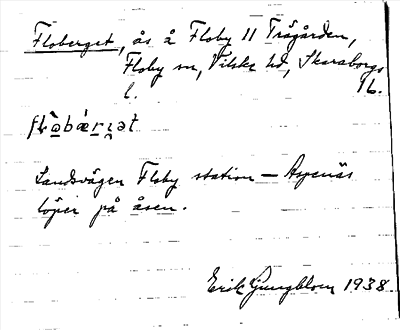 Floberget, ås å Floby 11 Trägården,
Floby sn, Vilske hd, Skaraborgs
l. 16.
flɷ̀bǽrjət
Landsvägen Floby station – Aspenäs
löper på åsen.
Erik Ljungblom 1938